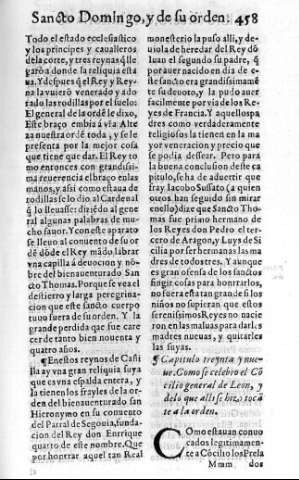 Sancto Domingo, y de su orden. 458
Todo el estado ecclesiastico
y los principes y caualleros
de la corte, y tres reynas q̃ lle
garõ a donde la reliquia esta
ua. Y despues q̃ el Rey y Rey
na la vuierõ venerado y ado
rado las rodillas por el suelo:
El general de la ordẽ le dixo,
Este braço embia a v̄ra Alte
za nuestra ordẽ toda, y se le
presenta por la mejor cosa
que tiene que dar. El Rey to
mo entonces con grandissi-
ma reuerencia el braço en las
manos, y assi como estaua de
rodillas se lo dio al Cardenal
q̃ lo lleuasse: diziẽdo al gene
ral algunas palabras de mu-
cho fauor. Y con este aparato
se lleuo al conuento de su or
dẽ dõde el Rey mãdo labrar
vna capilla d̃ deuocion y nõ-
bre del bienauenturado San
cto Thomas. Porque se vea el
destierro y larga peregrina-
cion que este sancto cuerpo
tuuo fuera de su orden. Y la
grande perdida que fue care
cer de tanto bien nouenta y
quatro años.
¶ En estos reynos de Casti
lla ay vna gran reliquia suya
que es vna espalda entera, y
la tienen los frayles de la or
den del bienauenturado san
Hieronymo en su conuento
del Parral de Segouia, funda-
cion del Rey don Enrrique
quarto de este nombre. Que
por honrrar aquel tan Real
monesterio la puso alli, y de-
uiola de heredar del Rey dõ
Iuan el segundo su padre, q̃
por auer nacido en dia de e-
ste sancto era grandissimamẽ
te su deuoto, y la pudo auer
facilmente por via de los Re-
yes de Francia. Y aquellos pa
dres como verdaderamente
religiosos la tienen en la ma
yor veneracion y precio que
se podia dessear. Pero para
la buena conclusion deste ca
pitulo, se ha de aduertir que
fray Iacobo Sussato (a quien
otros han seguido sin mirar
en ello) dize que Sancto Tho-
mas fue primo hermano de
los Reyes don Pedro el ter-
cero de Aragon, y Luys de Si
cilia por ser hermanas las ma
dres de todos tres. Y aunque
es gran ofensa de los sanctos
fingir cosas para honrrarlos,
no fuera esta tan grande si los
niños no supieran que estos
serenissimos Reyes no nacie
ron en las maluas para darles
madres nueuas, y quitarles
las suyas.
¶ Capitulo treynta y nue-
ue. Como se celebro el Cõ
cilio general de Leon, y
de lo que alli se hizo toca
te a la orden.
COmo estauan conuo
cados legitimamen-
te a Cõcilio los Prela
Mmm dos